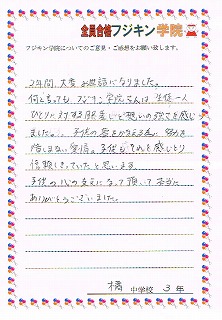 全員合格フジキン学院
フジキン学院についてのご意見・ご感想をお願い致します。
2年間、大変お世話になりました。
何と言っても、フジキン学院さんは生徒一人
ひとりに対する配慮と想いの強さを感じ
ました。子供の夢をかなえる為、努力を
惜しまない姿。子供もそれを感じとり
信頼しきっていたと思います。
子供の心の支えになって頂いて本当に
ありがとうございました。
橘 中学校 3年